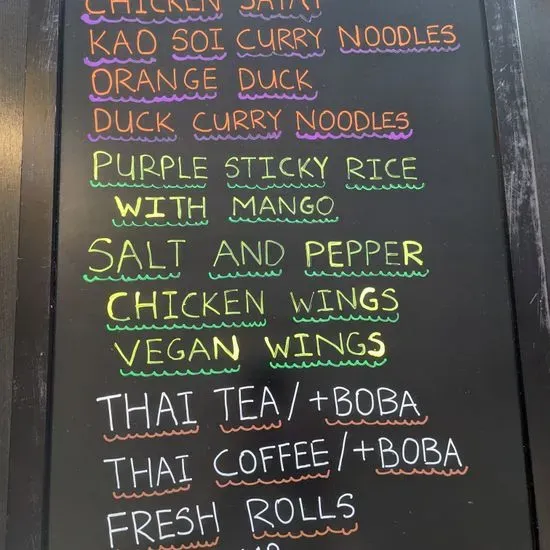 CHICKEN SATAY
KAO SOI CURRY NOODLES
ORANGE DUCK
DUCK CURRY NOODLES
PURPLE STICKY RICE
WITH MANGO
SALT AND PEPPER
CHICKEN WINGS
VEGAN WINGS
THAI TEA/+BOBA
THAI COFFEE/+BOBA
FRESH ROLLS